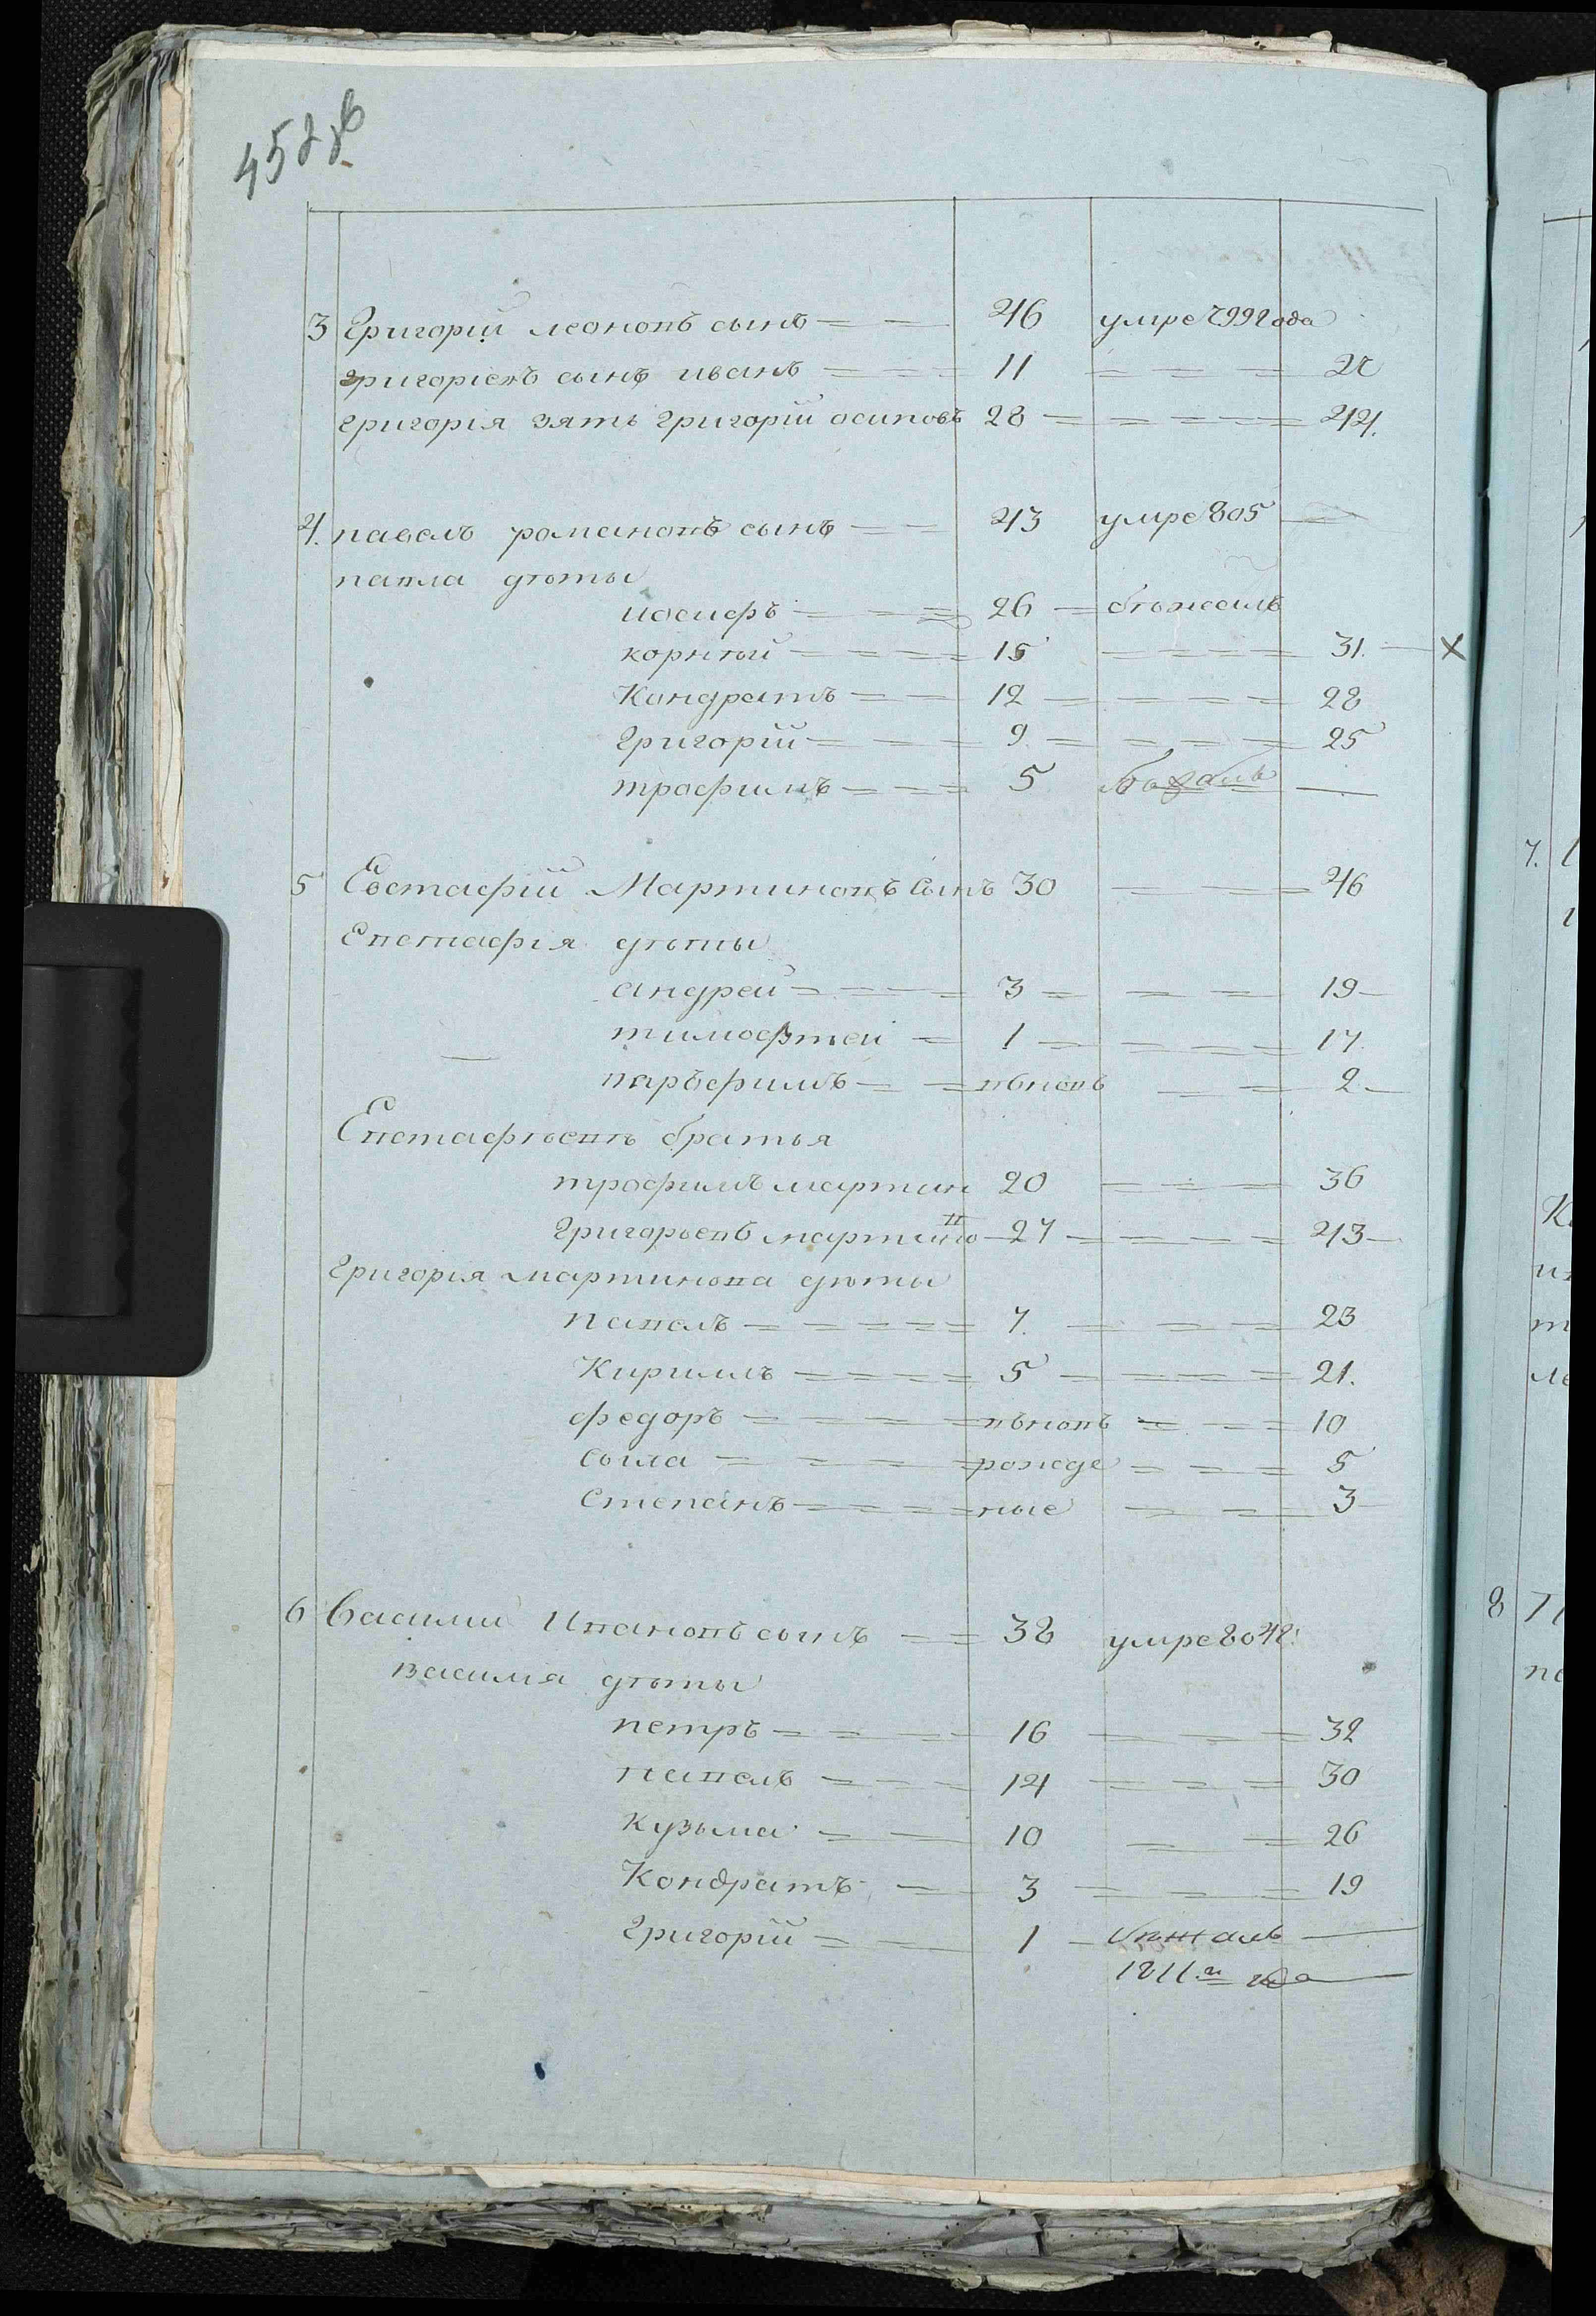 452 об
3 Григорій леоновъ сынъ = = 46 умре 799 года
григоріевъ сынъ иванъ = = = 11 = = = 27
григорія зять григорій осиповъ 28 = = = = 44.
4. павелъ романовъ сынъ = = 43 умре 805 —
павла дѣти
иосифъ = = = 26 = бѣжалъ
корнѣй = = = = 15 = = = = 31. — х
Кондратъ = = 12 = = = = 28
Григорій = = = 9. = = = = 25
трофимъ = = = 5 —
5 Евстафій Мартиновъ Сынъ 30 = = = 46
Евстафія дѣти
андрей = = = = 3 = = = 19 —
тимофѣей = 1 = = = = 17.
паръфимъ = = вновь = = 2. —
Евстафѣевъ братья
трофимъ мартин 20 = = = 36
Григорьевъ мартино — 27 = = = = 43 —
Григорія мартинова дѣти
павелъ = = = = = 7. = = = 23
Кирилъ = = = = 5 = = = = 21.
федоръ = = = = вновь = = = 10
сыла = = = = рожде = = = 5
Степанъ = = = = ные = = = 3
6 Василий Ивановъ сынъ = = 38 умре 804г.
василя дѣти
петръ = = = 16 = = 32
павелъ = = = 14 = = = 30
кузьма = = 10 = = 26
Кондратъ = 3 = = = 19
Григорій = = 1 — бѣжалъ —
1811.г года —
7.
8